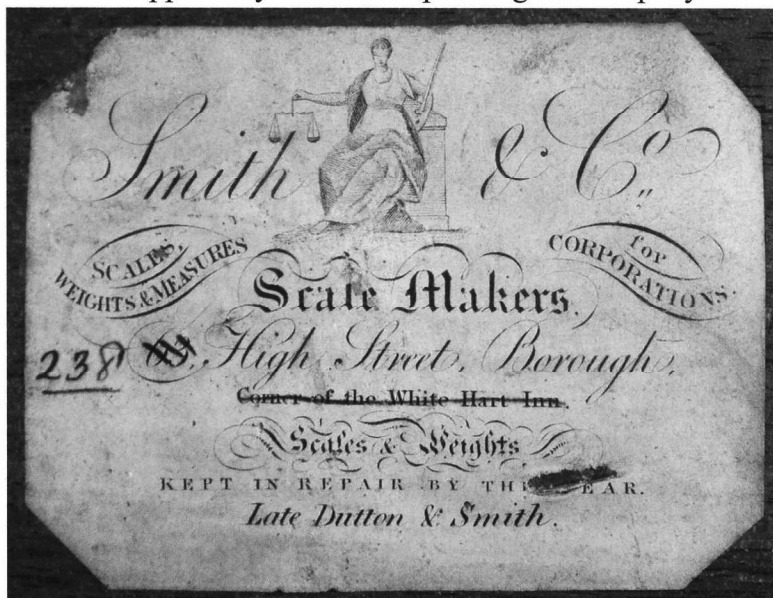 Smith & Co.
SCALES,
WEIGHTS & MEASURES
for
CORPORATIONS.
Scale Makers.
238 High Street, Borough.
Corner of the White Hart Inn.
Scales & Weights
KEPT IN REPAIR BY THE YEAR.
Late Dutton & Smith.